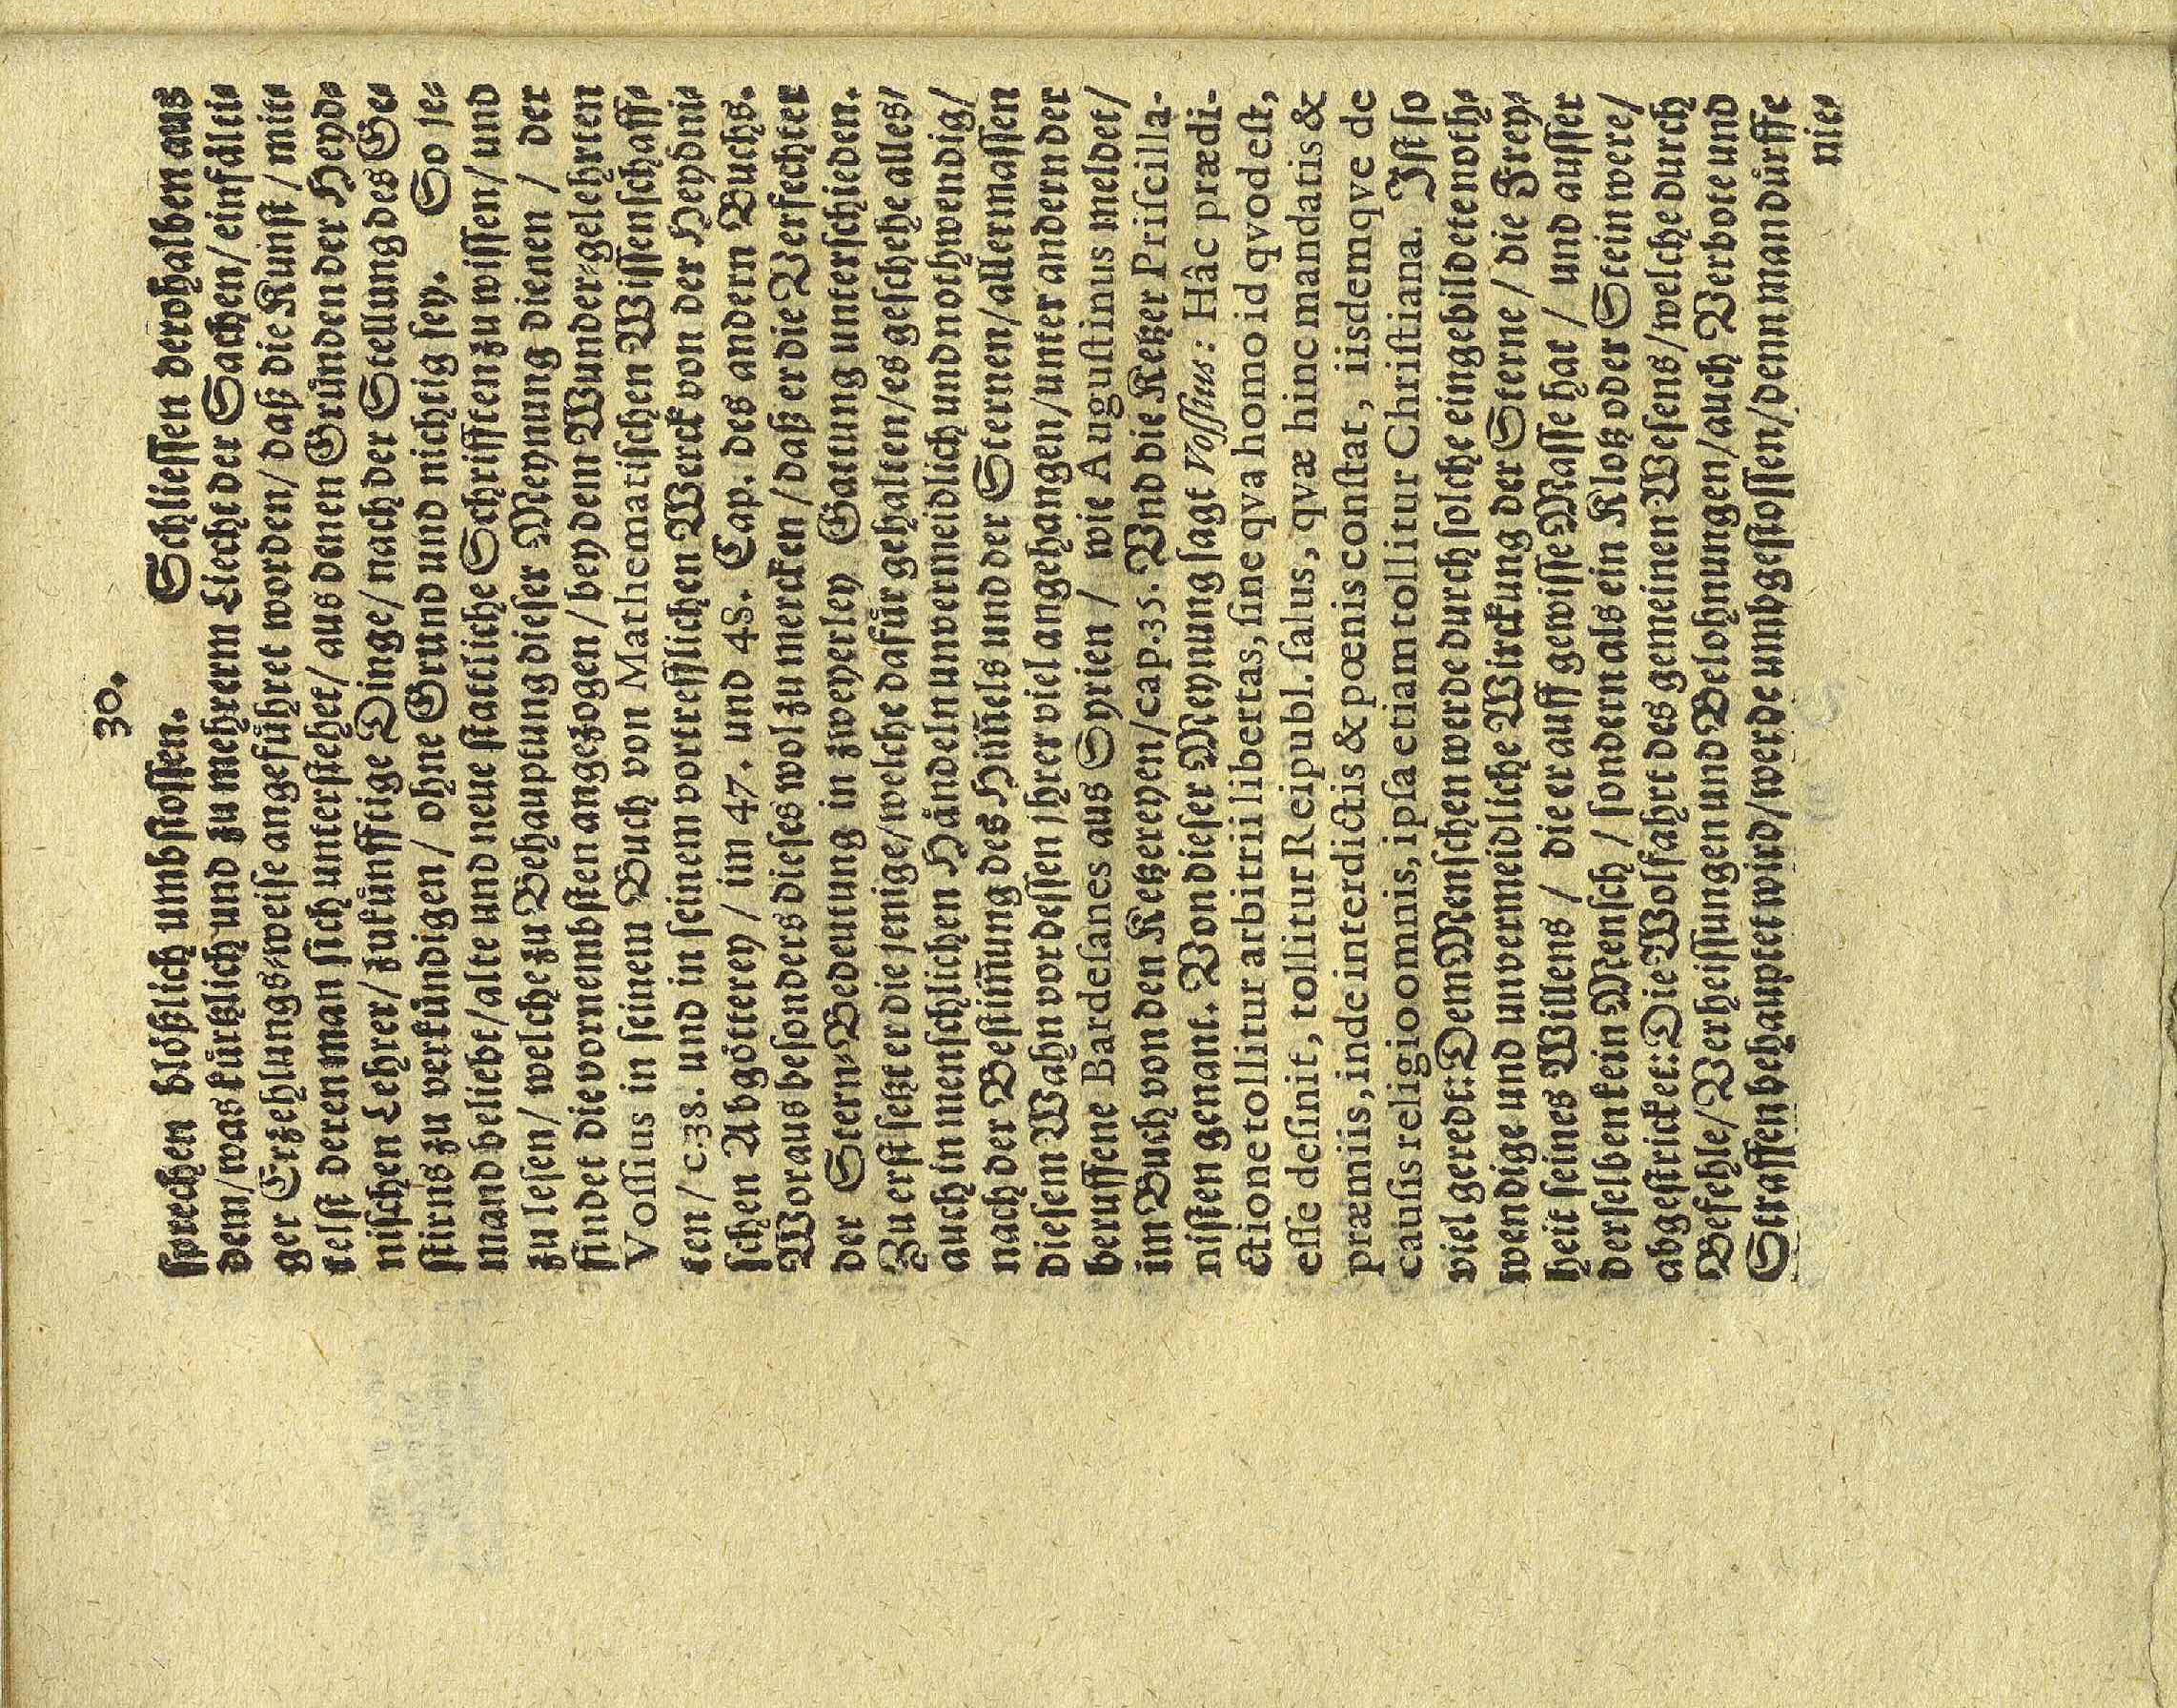 30.
sprechen blößlich umbstossen. Schliessen derohalben aus
dem/was kürtzlich und zu mehrerm Liecht der Sachen/einfälti⸗
ger Erzehlungs⸗weise angeführet worden/daß die Kunst/mit⸗
telst deren man sich unterstehet/aus denen Gründen der Heyd⸗
nischen Lehrer/zukünfftige Dinge/nach der Stellung des Ge⸗
stirns zu verkündigen/ohne Grund und nichtig sey. So je⸗
mand beliebt/alte und neue stattliche Schrifften zu wissen/und
zu lesen/welche zu Behauptung dieser Meynung dienen/der
findet die vornembsten angezogen/bey dem Wunder⸗gelehrten
Vossius in seinem Buch von Mathematischen Wissenschaff⸗
ten/c.38. und in seinem vortrefflichen Werck von der Heydni⸗
schen Abgötterey/im 47. und 48. Cap. des andern Buchs.
Woraus besonders dieses wol zu mercken/daß er die Verfechter
der Stern⸗Bedeutung in zweyerley Gattung unterschieden.
Zu erst setzt er die jenige/welche dafür gehalten/es geschehe alles/
auch in menschlichen Händeln unvermeidlich und nothwendig/
nach der Bestim̃ung des Him̃els und der Sternen/allermassen
diesem Wahn vor dessen ihrer viel angehangen/unter andern der
beruffene Bardesanes aus Syrien/wie Augustinus meldet/
im Buch von den Ketzereyen/cap.35. Und die Ketzer Priscilla-
nisten genant. Von dieser Meynung sagt Vossius: Hâc prædi-
ctione tollitur arbitrii libertas, sine qva homo id qvod est,
esse desinit, tollitur Reipubl. salus, qvæ hinc mandatis &
præmiis, inde interdictis & pœnis constat, iisdemqve de
causis religio omnis, ipsa etiam tollitur Christiana. Ist so
viel geredt: Dem Menschen werde durch solche eingebildete noth⸗
wendige und unvermeidliche Wirckung der Sterne/die Frey⸗
heit seines Willens/die er auff gewisse Masse hat/und ausser
derselben kein Mensch/sondern als ein Klotz oder Stein were/
abgestricket: Die Wolfahrt des gemeinen Wesens/welche durch
Befehle/Verheissungen und Belohnungen/auch Verbote und
Straffen behauptet wird/werde umbgestossen/denn man dürffe
nie⸗